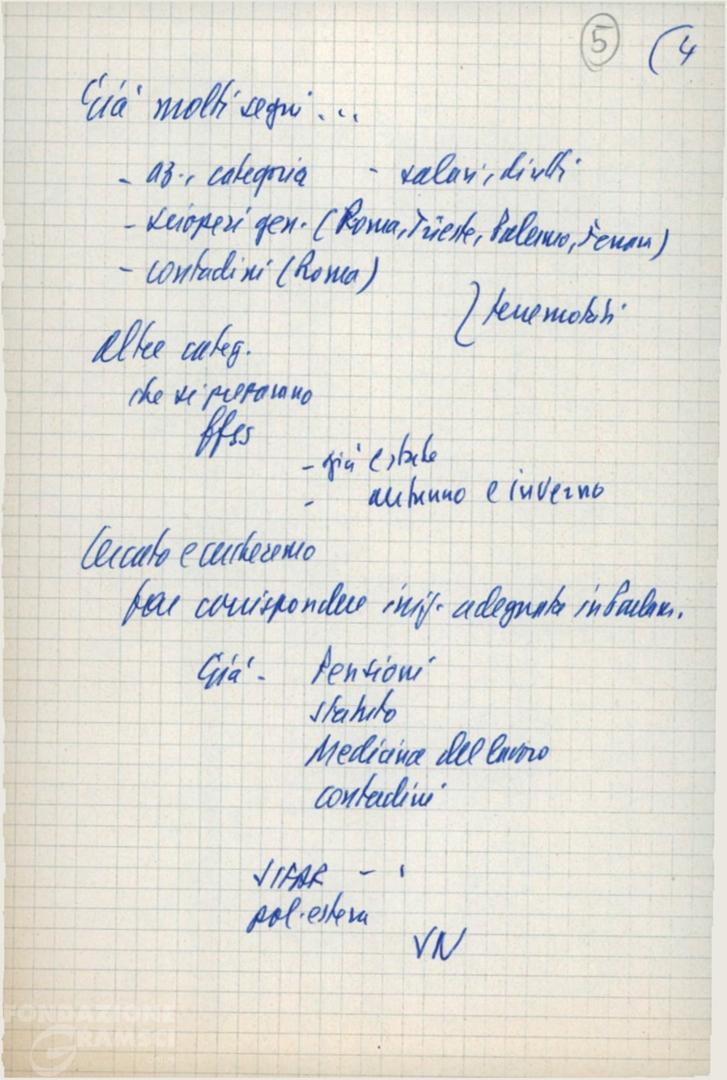 5 (4
Già molti segni...
- az., categoria - salari, diritti
- scioperi gen. (Roma, Trieste, Palermo, Ferrara)
- contadini (Roma)
} terremotati
Altre categ.
che si preparano
ffss
- già estate
- autunno e inverno
Cercato e cercheremo
far corrispondere iniz. adeguata in Parlam.
Già - Pensioni
Statuto
Medicina del lavoro
contadini
SIFAR -
pol. estera
VN
FONDAZIONE
GRAMSCI